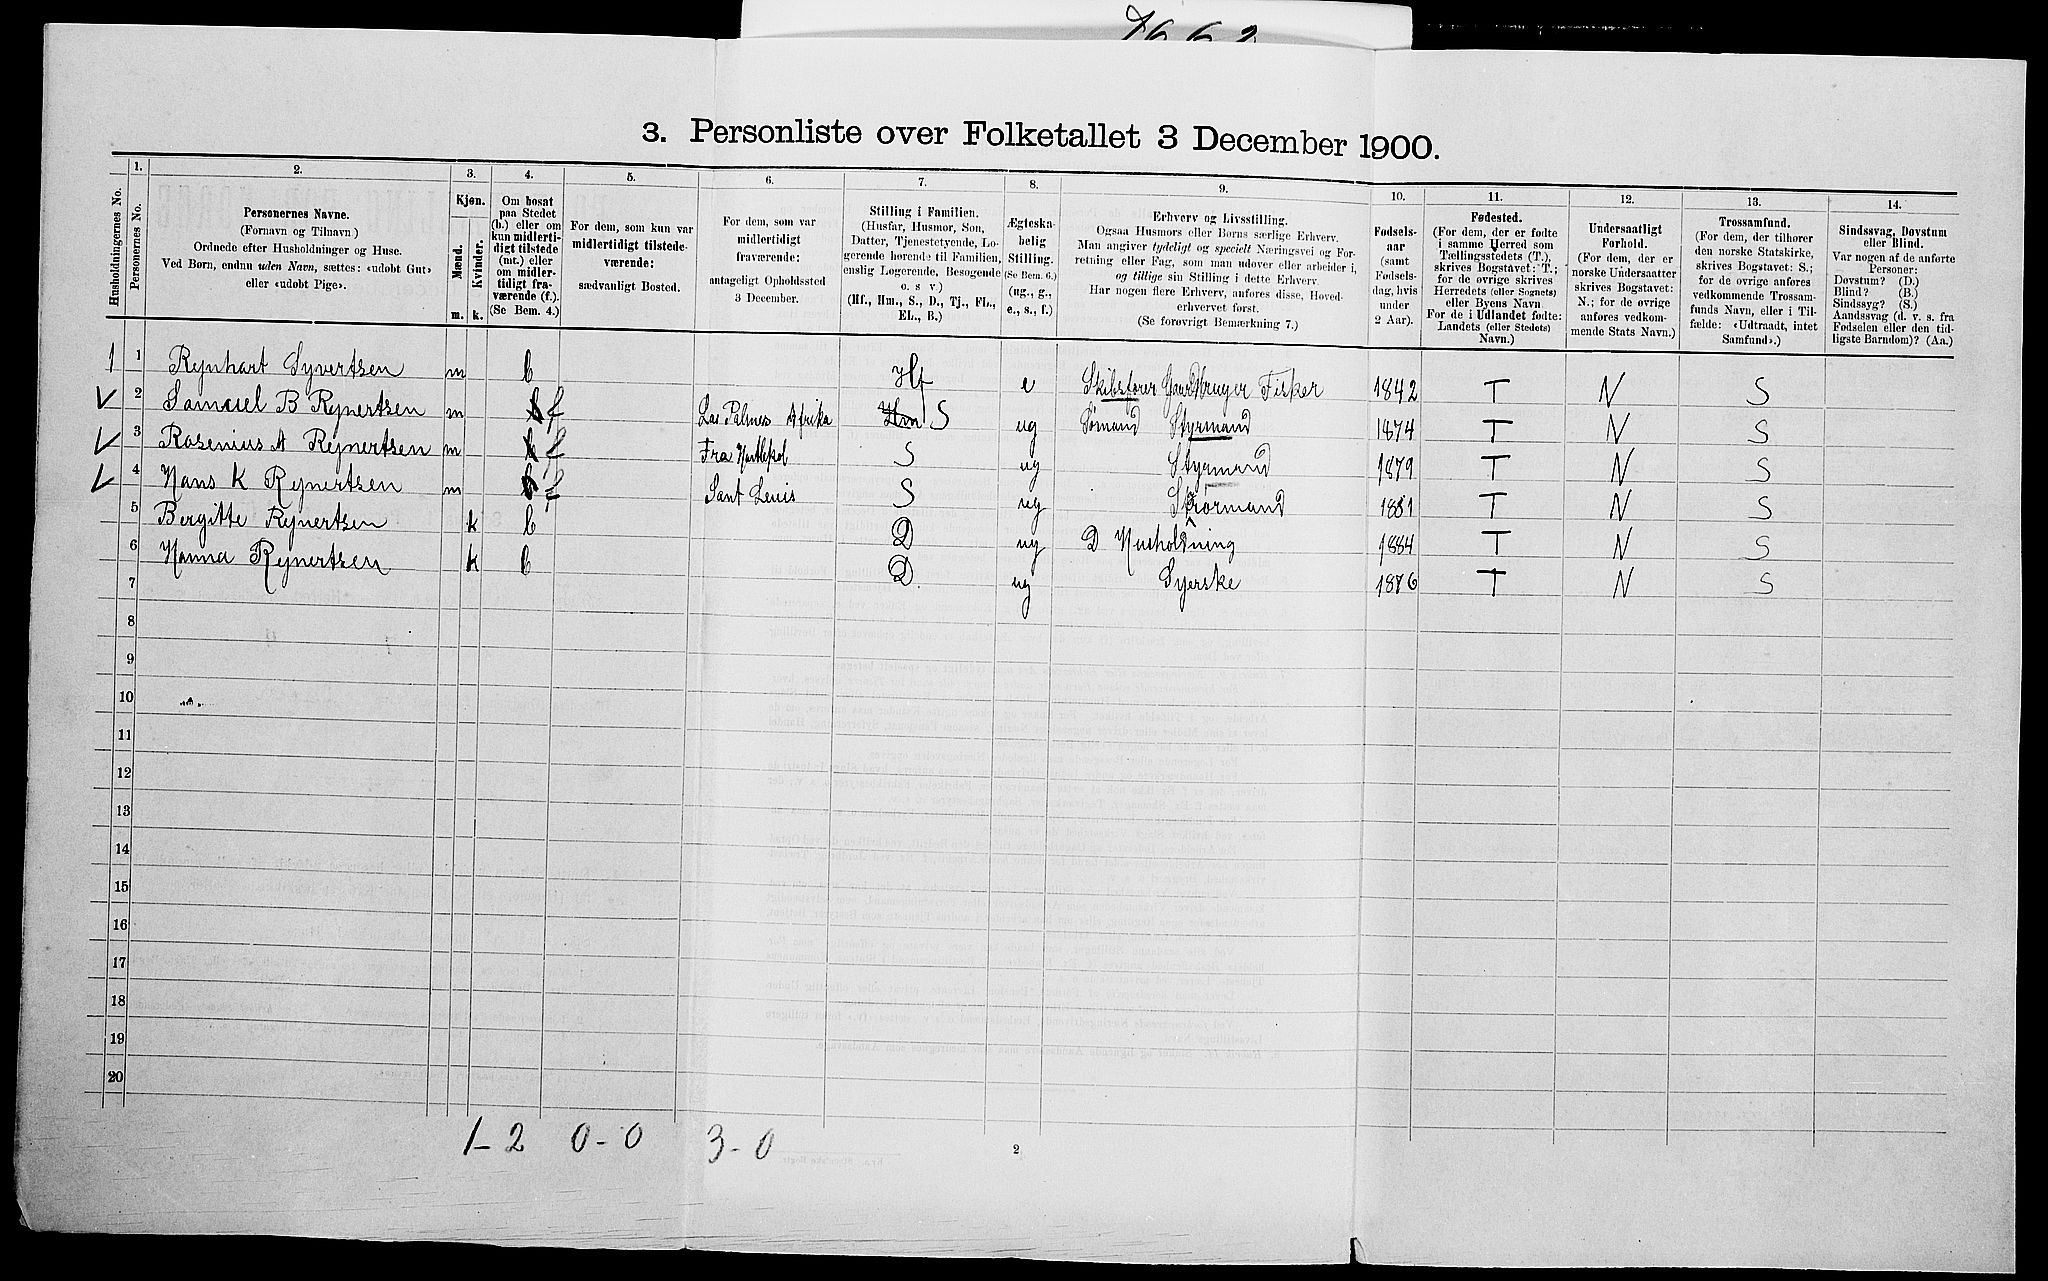 3. Personliste over Folketallet 3 December 1900.
Husholdningernes No.
1.
Personernes No.
2.
Personernes Navne.
(Fornavn og Tilnavn)
Ordnede efter Husholdninger og Huse.
Ved Børn, endnu uden Navn, sættes: «udøbt Gut»
eller «udøbt Pige».
3.
Kjøn.
Mænd.
Kvinder.
m.
k.
4.
Om bosat
paa Stedet
(b.) eller om
kun midlerti-
digt tilstede
(mt.) eller
om midler-
tidigt fra-
værende (f.).
(Se Bem. 4.)
5.
For dem, som kun var
midlertidigt tilstede-
værende:
sædvanligt Bosted.
6.
For dem, som var
midlertidigt
fraværende:
antageligt Opholdssted
3 December.
7.
Stilling i Familien.
(Husfar, Husmor, Søn,
Datter, Tjenestetyende, Lo-
gerende hørende til Familien,
enslig Logerende, Besøgende
o. s v.)
(Hf., Hm., S., D., Tj., FL.,
EL., B.)
8.
Ægteska-
belig
Stilling.
(Se Bem. 6.)
(ug., g.,
e., s., f.)
9.
Erhverv og Livsstilling.
Ogsaa Husmors eller Børns særlige Erhverv.
Man angiver tydeligt og specielt Næringsvei og For-
retning eller Fag, som man udøver eller arbeider i,
og tillige sin Stilling i dette Erhverv.
Har nogen flere Erhverv, anføres disse, Hoved-
erhvervet først.
(Se forøvrigt Bemærkning 7.)
10.
Fødsels-
aar
(samt
Fødsels-
dag, hvis
under
2 Aar).
11.
Fødested.
(For dem, der er fødte
i samme Herred som
Tællingsstedets (T.),
skrives Bogstavet: T.;
for de øvrige skrives
Herredets (eller Sognets)
eller Byens Navn
For de i Udlandet fødte:
Landets (eller Stedets)
Navn.)
12.
Undersaatligt
Forhold.
(For dem, der er
norske Undersaatter
skrives Bogstavet:
N.; for de øvrige
anføres vedkom-
mende Stats Navn.)
13.
Trossamfund.
(For dem, der tilhører
den norske Statskirke,
skrives Bogstavet: S.;
for de øvrige anføres
vedkommende Trossam-
funds Navn, eller i Til-
fælde: «Udtraadt, intet
Samfund».)
14.
Sindssvag, Døvstum
eller Blind.
Var nogen af de anførte
Personer:
Døvstum? (D.)
Blind? (B.)
Sindssyg? (S.)
Aandssvag (d. v. s. fra
Fødselen eller den tid-
ligste Barndom)? (Aa.)
1 1 Rejnhart Syvertsen m b Hf e Skibsfører Gaardbruger Fisker 1842 T N S
2 Samuel B Rejnertsen m b f Las Palmes Afrika Hm S ug Sømand Styrmand 1874 T N S
3 Rosenius A Rejnertsen m b f Fra Hartlepol S ug Styrmand 1879 T N S
4 Hans K Rejnertsen m b f Sant Leuis S ug 1881 T N S
5 Bergitte Rejnertsen k b D ug D Husholdning 1884 T N S
6 Hanna Rejnertsen k b D. ug Syerske 1876 T N S
7
8
9
10
11
12
13
14
15
16
17
18
19
20
1-2 0-0 3-0
2